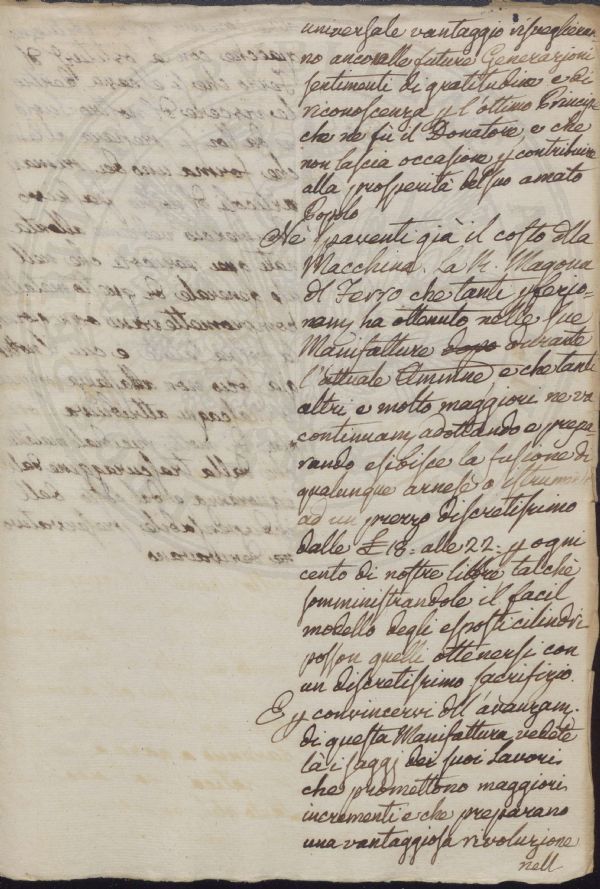 universale vantaggio risveglieran-
no ancora alle future Generazioni
sentimenti di gratitudine e di
riconoscenza p l'ottimo Principe
che ne fù il Donatore, e che
non lascia occasione p contribuire
alla prosperità del suo amato
Popolo
Ne spaventi già il costo dlla
Macchina. La R. Magona
dl Ferro che tanti pfezio-
nam, ha ottenuto nelle sue
Manifatture dopo durante
l'attuale e che tanti
altri e molto maggiori ne va
continuam, adottando e prepa-
rando esibisce la fusione di
qualunque arnese o istrumto
ad un prezzo discretissimo
dalle £ 18: alle 22: p ogni
cento di nostre libbre talchè
somministrandole il facil
modello degli esposti cilindri
posson quelli ottenersi con
un discretissimo sacrifizio.
E p convincervi dll'avanzam:
di questa Manifattura vedete
là i saggj dei suoi Lavori
che promettono maggiori
incrementi e che preparano
una vantaggiosa rivoluzione
nell